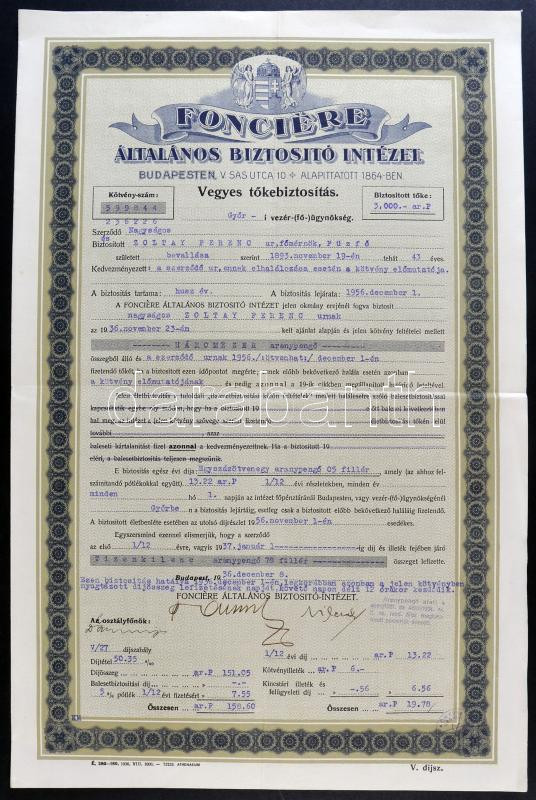 FONCIÈRE
ÁLTALÁNOS BIZTOSITÓ INTÉZET
BUDAPESTEN, V. SAS UTCA 10 ALAPITTATOTT 1864-BEN.
Kötvény-szám:
Vegyes tőkebiztosítás.
Biztosított tőke:
599844
3,000.- ar.P
236226
Győr - i vezér-(fő-)ügynökség.
Szerződő Nagyságos
és
Biztosított ZOLTAY FERENC ur, főmérnök, Füzfő
született bevallása szerint 1893.november 19-én tehát 43 éves.
Kedvezményezett: a szerződő ur, ennek elhalálozása esetén a kötvény előmutatója.
A biztosítás tartama: husz év. A biztosítás lejárata: 1956.december 1.
A FONCIÈRE ÁLTALÁNOS BIZTOSITÓ INTÉZET jelen okmány erejénél fogva biztosít
nagyságos ZOLTAY FERENC urnak
az 1936.november 23-án kelt ajánlat alapján és jelen kötvény feltételei mellett
HÁROMEZER aranypengő
összegből álló és a szerződő urnak 1956./:ötvenhat:/ december 1-én
fizetendő tőkét, ha a biztosított ezen időpontot megérte; ennek előbb bekövetkező halála esetén azonban
a kötvény előmutatójának és pedig azonnal a 19-ik cikkben megállapított
hal meg az intézet a jelen kötvény szövege szerint fizetendő
további azaz
baleseti kártalanítást fizet azonnal a kedvezményezettnek. Ha a biztosított 19
eléri, a balesetbiztosítás teljesen megszünik.
E biztosítás egész évi dija Egyszázötvenegy aranypengő 05 fillér, amely (az ahhoz fel-
számítandó pótlékokkal együtt) 13.22 ar.P 1/12 évi részletekben, minden év
minden hó 1. napján az intézet főpénztáránál Budapesten, vagy vezér-(fő-)ügynökségénél
Győrbe n a biztosítás lejártáig, esetleg csak a biztosított előbb bekövetkező haláláig fizetendő.
A biztosított életbenléte esetében az utolsó díjrészlet 1956.november 1-én esedékes.
Egyszersmind ezennel elismerjük, hogy a szerződő
az első 1/12 évre, vagyis 1937.január 1-ig díj és illeték fejében járó
Tizenkilenc aranypengő 78 fillér összeget lefizette.
Budapest, 1936.december 8.
Ezen biztosítás hatálya 1936.december 1-én, legkorábban azonban a jelen kötvényben
nyugtázott díjösszeg lefizetésének napját követő napon déli 12 órakor kezdődik.
FONCIÈRE ÁLTALÁNOS BIZTOSITÓ-INTÉZET.
Az osztályfőnök:
V/27 díjszabály
Díjtétel 50.35 %
Díjösszeg ar.P 151.05
Balesetbiztosítási díj -.-
5 % pótlék 1/12 évi fizetésért 7.55
Összesen ar.P 158.60
1/12 évi díj ar.P 13.22
Kötvényilleték ar.P 6.-
Kincstári illeték és
felügyeleti díj -.56 6.56
Összesen ar.P 19.78
KM
V. díjsz.
darabanth